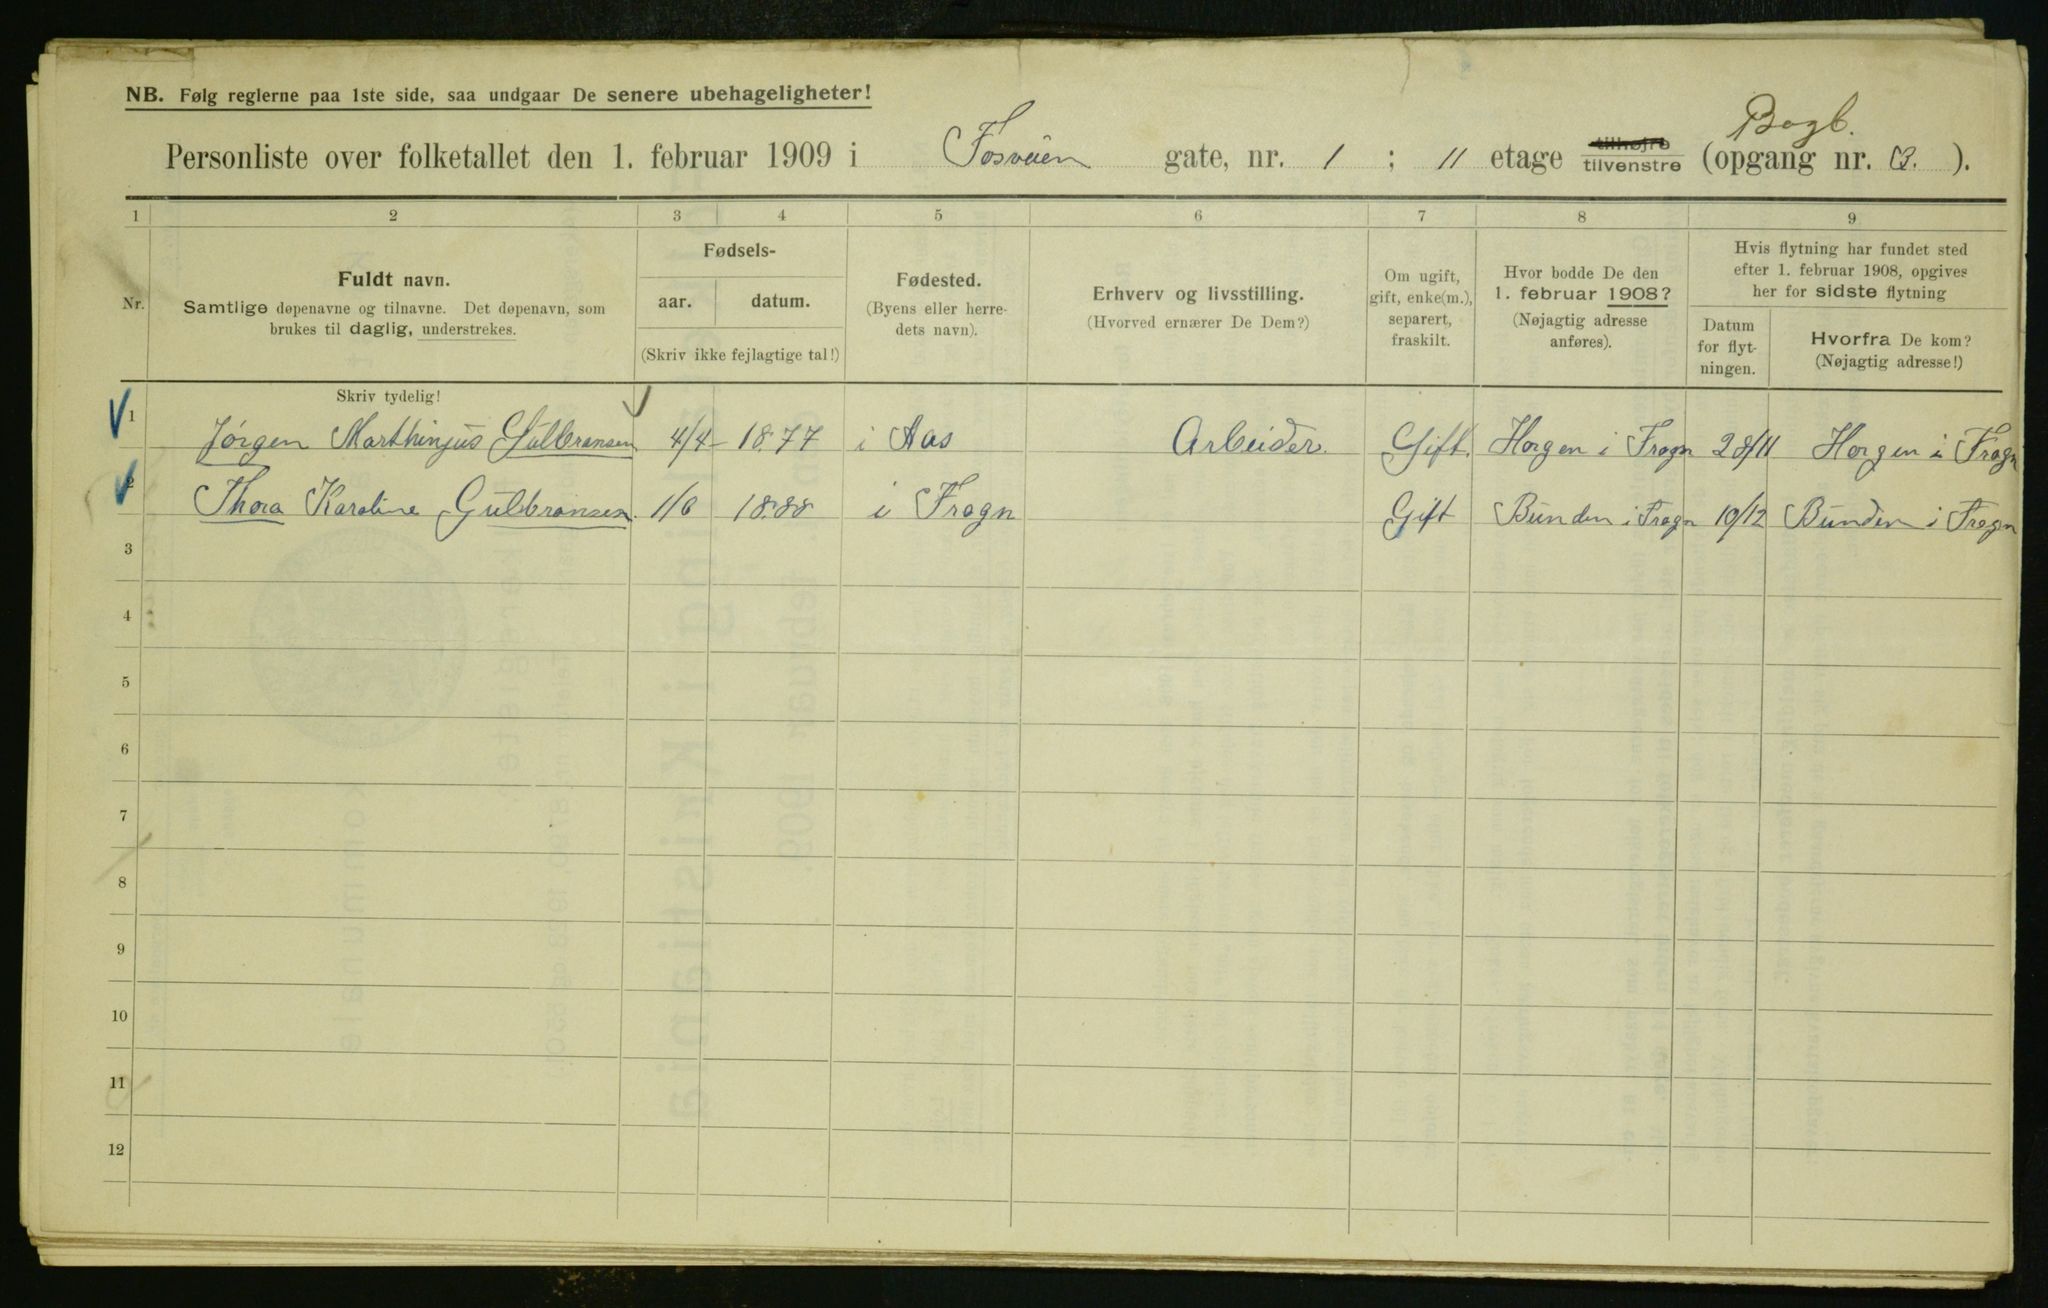 NB. Følg reglerne paa 1ste side, saa undgaar De senere ubehageligheter!
Bagb.
Personliste over folketallet den 1. februar 1909 i Fosveien gate, nr. 1 ; 11 etage tilhøjre tilvenstre (opgang nr. B. ).
1 2 3 4 5 6 7 8 9
Nr.
Fuldt navn.
Samtlige døpenavne og tilnavne. Det døpenavn, som
brukes til daglig, understrekes.
Fødsels-
aar. datum.
(Skriv ikke fejlagtige tal!)
Fødested.
(Byens eller herre-
dets navn).
Erhverv og livsstilling.
(Hvorved ernærer De Dem?)
Om ugift,
gift, enke(m.),
separert,
fraskilt.
Hvor bodde De den
1. februar 1908?
(Nøjagtig adresse
anføres).
Hvis flytning har fundet sted
efter 1. februar 1908, opgives
her for sidste flytning
Datum
for flyt-
ningen.
Hvorfra De kom?
(Nøjagtig adresse!)
Skriv tydelig!
1 Jørgen Marthinius Gulbransen 4/4- 1877 i Aas Arbeider. Gift. Horgen i Frogn 28/11 Horgen i Frogn
2 Thora Karoline Gulbransen. 1/6 1888 i Frogn Gift Bunden i Frogn 10/12 Bunden i Frogn
3
4
5
6
7
8
9
10
11
12